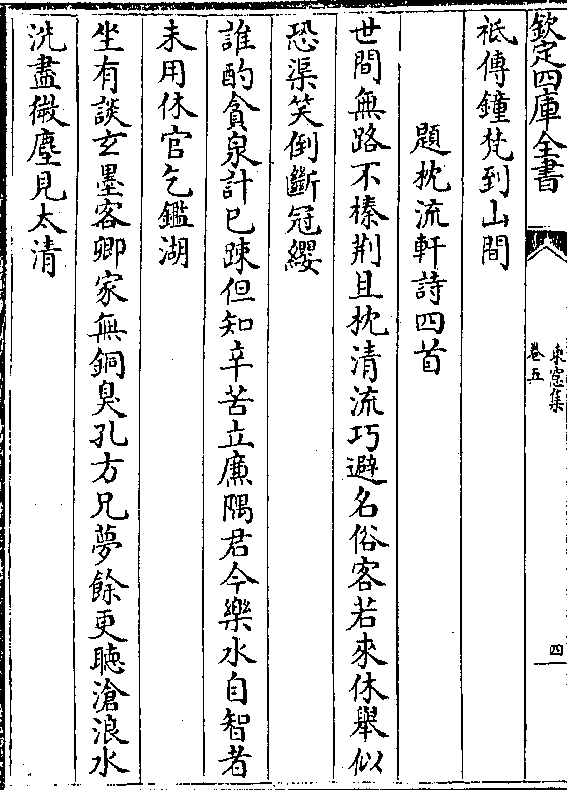 欽定四庫全書
東窓集
卷五
四
祗傳鐘梵到山間
題枕流軒詩四首
世間無路不榛荆且枕清流巧避名俗客若來休舉似
恐渠笑倒斷冠纓
誰酌貪泉計已踈但知辛苦立廉隅君今樂水自智者
未用休官乞鑑湖
坐有談玄墨客卿家無銅臭孔方兄夢餘更聽滄浪水
洗盡微塵見太清